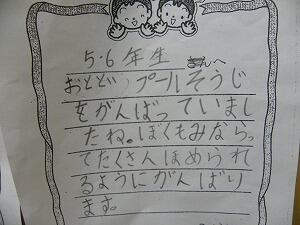 5・6年生 さんへ
おととい プールそうじ
をがんばっていまし
たね。ぼくもみならっ
てたくさんほめられ
るようにがんばり
ます。